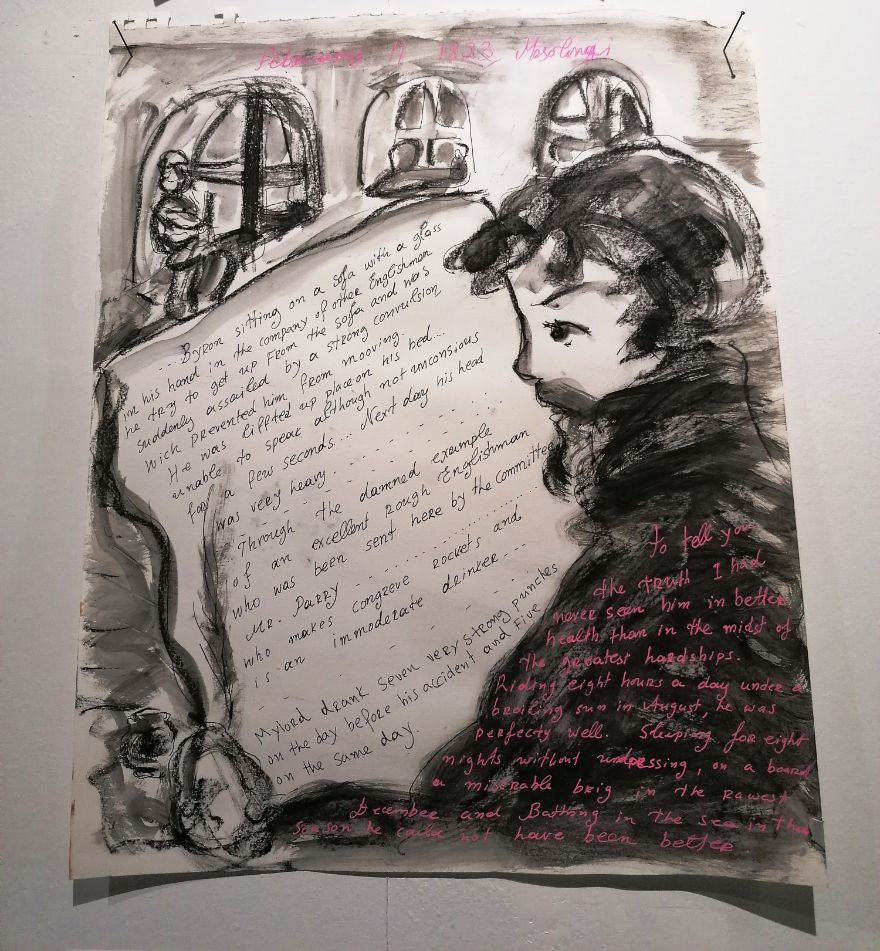 February 17 1823 Mesolingi
....Byron sitting on a sofa with a glass
in his hand in the company of other Englishman
he try to get up from the sofa and was
suddenly assailed by a strong convulsion
wich prevented him from mooving.
He was liffted up place on his bed....
unable to speak although not unconsious
for a few seconds... Next day his head
was very heavy.
Through the damned example
of an excellent rough Englishman
who was been sent here by the committee
Mr. Parry
who makes congreve rockets and
is an immoderate drinker...
Mylord drank seven very strong punches
on the day before his accident and five
on the same day.
to tell you
the truth I had
never seen him in better
health than in the midst of
the greatest hardships.
Riding eight hours a day under a
broiling sun in August, he was
perfecty well. Sleeping for eight
nights without undressing, on a board
a miserable brig in the rawest
December and Bathing in the sea in that
season he could not have been better